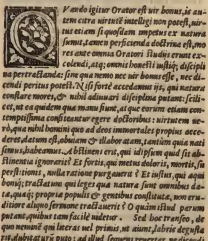 Vando igitur Orator est vir bonus, is au-
tem citra virtutē intelligi non potest, vir-
tus etiam si quosdam impetus ex natura
sumit, tamen perficienda doctrina est, mo
res ante omnia Oratori studijs erunt ex-
colendi, atq; omnis honesti iustiq; discipli
na pertractanda: sine qua nemo nec vir bonus esse, nec di-
cendi peritus potest. Nisi fortè accedamus ijs, qui natura
constare mores, & nihil adiuuari disciplina putant: scili-
cet, ut ea quidem quæ manu fiunt, atque eorum etiam con-
temptissima confiteantur egere doctoribus: virtutem ve-
rò, qua nihil homini quo ad deos immortales propius acce-
deret, datum est, obuiam & illaboratam, tantùm quia nati
simus, habeamus. Abstinens erit, qui id ipsum quid sit ab-
stinentia ignoret? Et fortis, qui metus doloris, mortis, su
perstitionis, nulla ratione purgauerit? Et iustus, qui æqui
boniq; tractatum qui leges quæ natura sunt omnibus da-
tæ, quæq; proprie populis & gentibus constitutæ, non eru-
ditiore aliquo sermone tractauerit? O quàm istud paruum
putant, quibus tam facilè videtur. Sed hoc transeo, de
quo neminem qui literas vel primis, ut aiunt, labris degusta
rit, dubitaturum puto: ad illud sequens